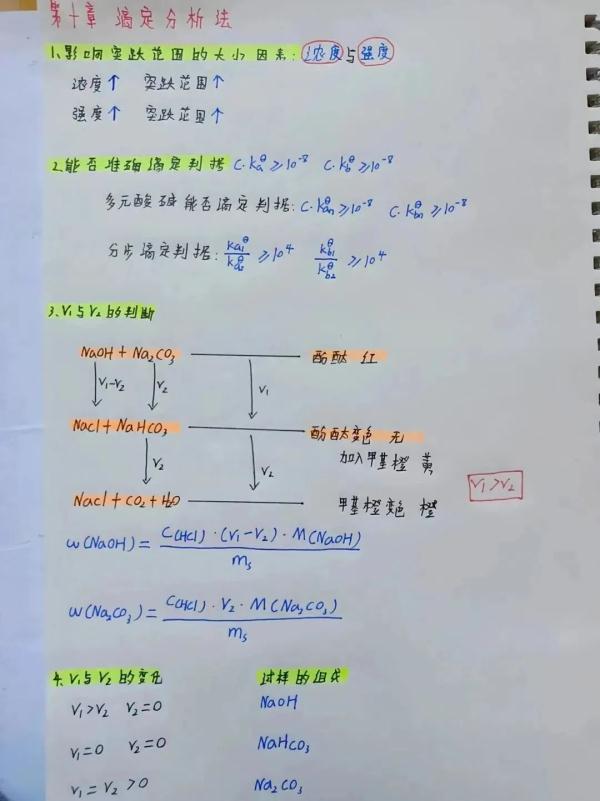 第十章 滴定分析法
1.影响突跃范围的大小因素:浓度与强度
浓度↑ 突跃范围↑
强度↑ 突跃范围↑
2.能否准确滴定判据 C·Ka^θ≥10^-8 C·Kb^θ≥10^-8
多元酸碱能否滴定判据:C·Kan^θ≥10^-8 C·Kbn^θ≥10^-8
分步滴定判据:Ka1^θ/Ka2^θ≥10^4 Kb1^θ/Kb2^θ≥10^4
3.V1与V2的判断
NaOH+Na2CO3 酚酞 红
↓V1-V2 ↓V2 ↓V1
NaCl+NaHCO3 酚酞变色 无
加入甲基橙 黄
↓V2 ↓V2
V1>V2
NaCl+CO2+H2O 甲基橙变色 橙
w(NaOH)=C(HCl)·(V1-V2)·M(NaOH)/ms
w(Na2CO3)=C(HCl)·V2·M(Na2CO3)/ms
4.V1与V2的变化 试样的组成
V1>V2 V2=0 NaOH
V1=0 V2=0 NaHCO3
V1=V2>0 Na2CO3